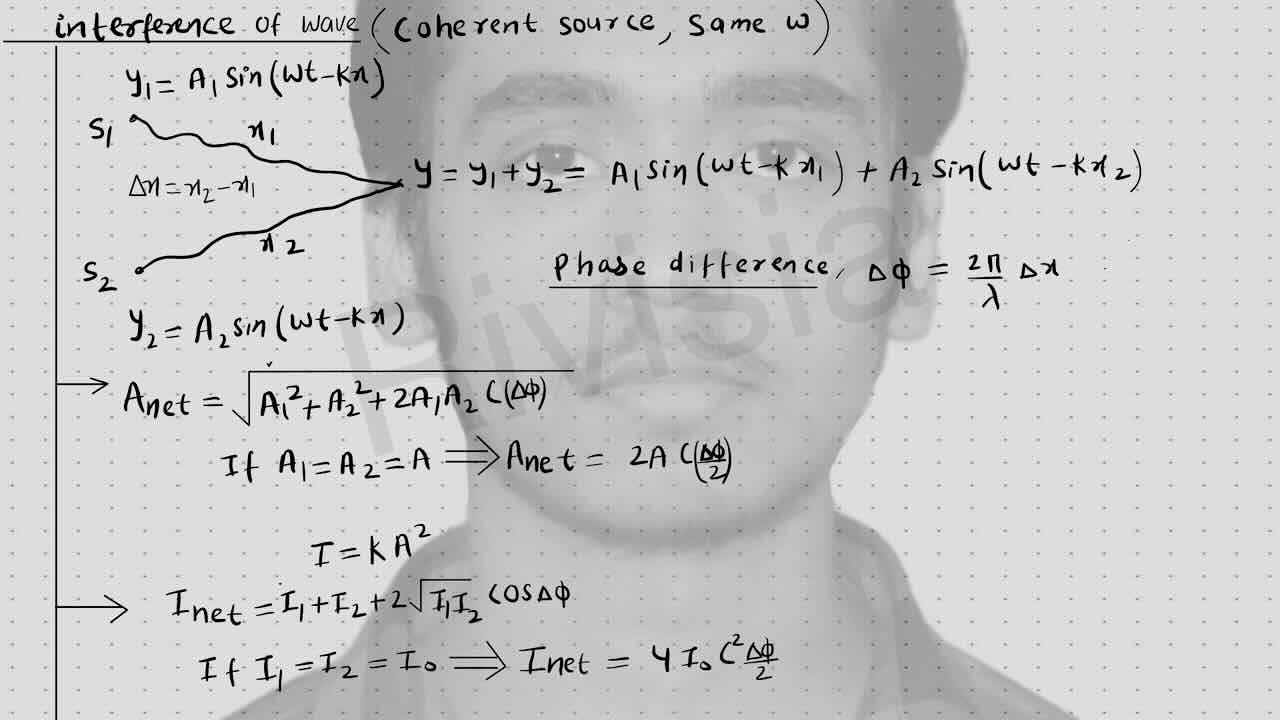 interference of wave (coherent source, same ω)
y₁ = A₁ sin(ωt-kx)
S₁
x₁
Δx = x₂-x₁
y = y₁+y₂ = A₁ sin(ωt-kx₁) + A₂ sin(ωt-kx₂)
x₂
S₂
Phase difference, Δϕ = 2π/λ Δx
y₂ = A₂ sin(ωt-kx)
→ Anet = √(A₁²+A₂²+2A₁A₂ C(Δϕ))
If A₁=A₂=A ⟹ Anet = 2A C(Δϕ/2)
I = KA²
→ Inet = I₁+I₂+2√(I₁I₂) cosΔϕ
If I₁=I₂=I₀ ⟹ Inet = 4I₀C² Δϕ/2